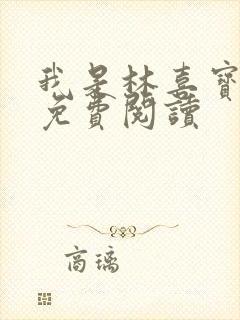 我是林喜寶
免費閱讀
商璃